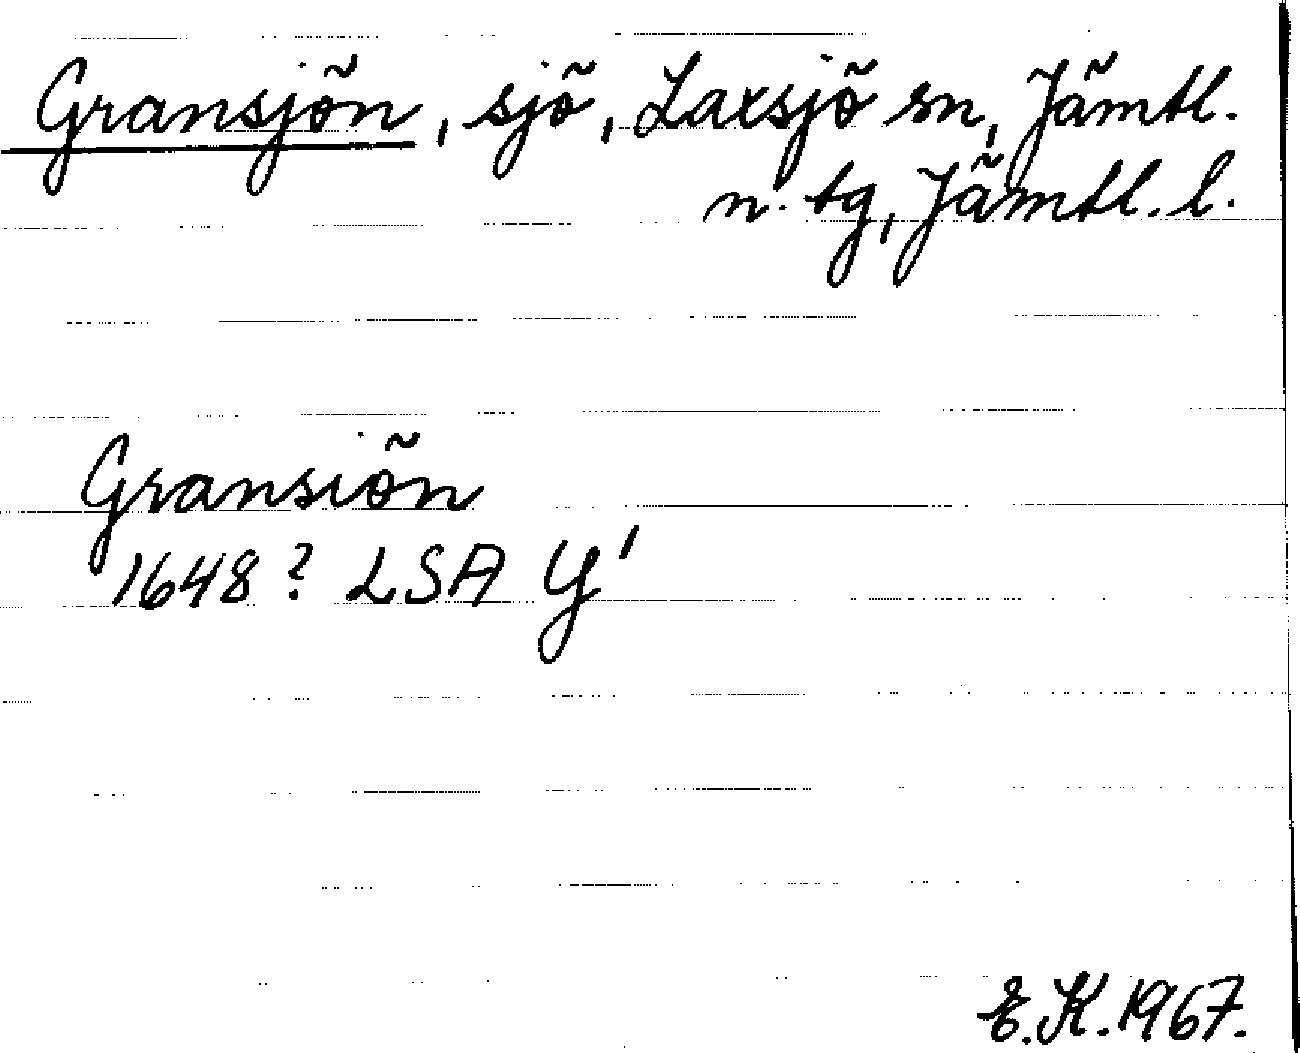 Gransjön, sjö, Laxsjö sn, Jämtl.
n. tg, Jämtl. l.
Gransiön
1648? LSA Y'
E.K. 1967.